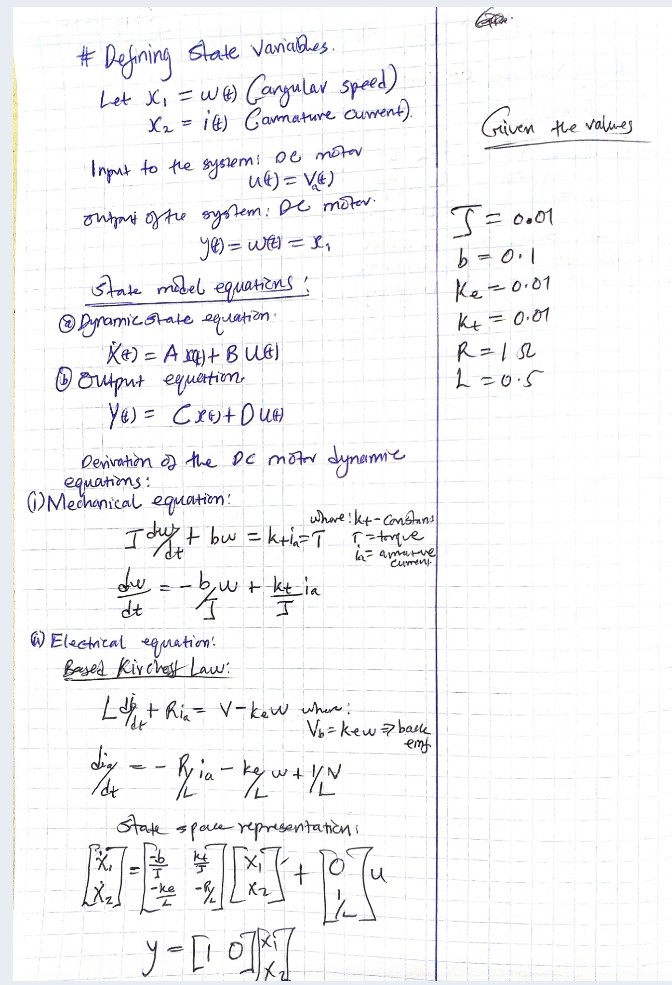 # Defining State Variables.
Let x₁ = ω(t) (angular speed)
x₂ = i(t) (armature current).
Input to the system: DC motor
u(t) = Vₐ(t)
output of the system: DC motor.
y(t) = ω(t) = x₁
State model equations:
(a) Dynamic state equation.
Ẋ(t) = A x(t) + B U(t)
(b) Output equation.
Y(t) = C x(t) + D U(t)
Derivation of the DC motor dynamic
equations:
(i) Mechanical equation:
J dω/dt + bω = kt iₐ = T where: kt - constant
T = torque
iₐ = amarure
current
dω/dt = -b/J ω + kt/J iₐ
(ii) Electrical equation:
Based Kirchoff Law:
L diₐ/dt + R iₐ = V - keω where:
V_b = keω ⇒ back
emf
diₐ/dt = - R/L iₐ - ke/L ω + 1/L V
State space representation:
[ẋ₁ ẋ₂] = [-b/J kt/J -ke/L -R/L] [x₁ x₂] + [0 1/L] u
y = [1 0] [x₁ x₂]
Given the values
J = 0.01
b = 0.1
Ke = 0.01
Kt = 0.01
R = 1 Ω
L = 0.5